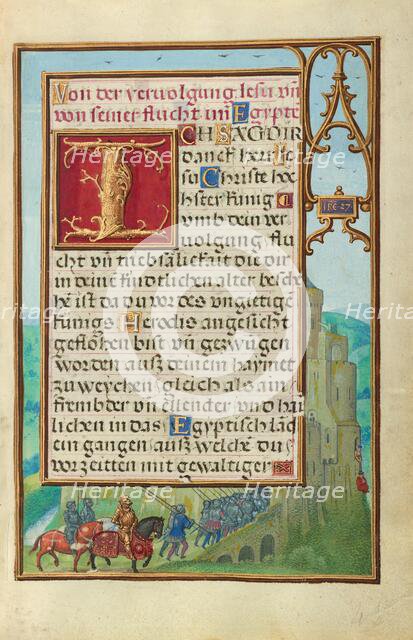 Von der vervolgung Iesu vn̄
von seiner flucht in Egyptē
ICH SAG DIR
danck herr Ie
su Christe hoe
hster kunig
vmb dein ver
uolgung flu
cht vn̄ truebsalickait die dir
in deinē kindtlichen alter besche
hē ist da du vor des vngietigē
kunigs Herodis angesicht
geflohen bist vn̄ gezwūgen
worden ausz deinem haymet
zu weychen gleich als ain
frembder vn̄ ellender vnd hai
lichen in das Egyptisch lād
ein gangen ausz welchē du
vor zeitten mit gewaltiger
Heritage
Heritage
Heritage
Heritage
Heritage
Heritage
Heritage
Heritage